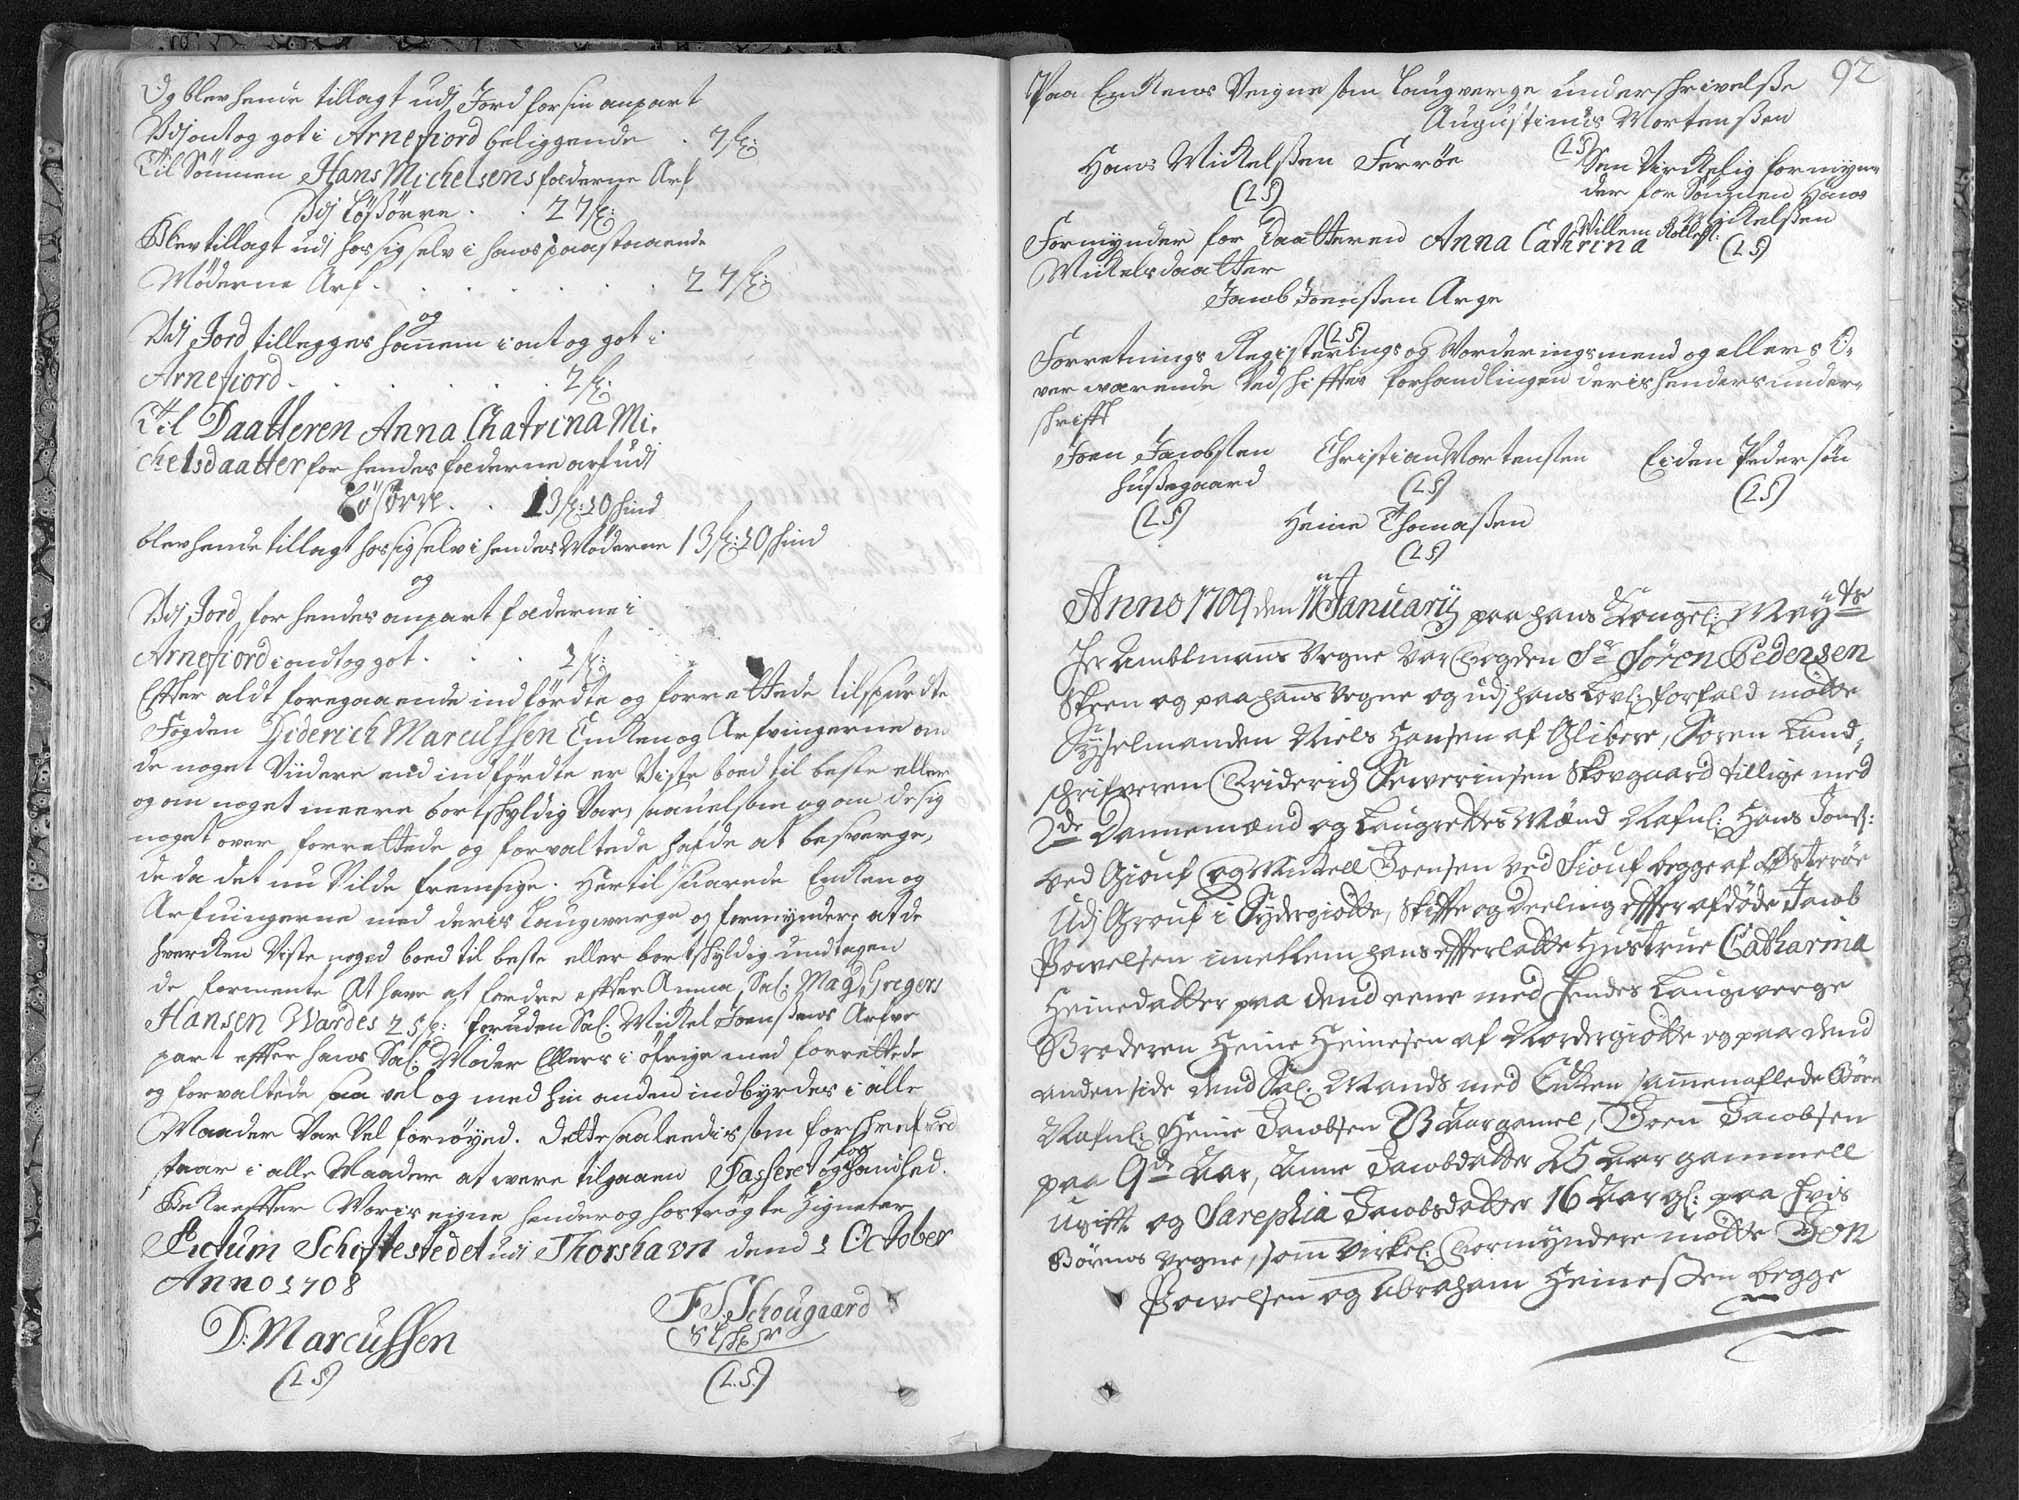 Og blev hende tillagt udj Jord for sin anpart
Udj ont og got i Arnefiord beliggende . 7 sk:
Til Sönnen Hans Michelsens fæderne Arf
Udj Lößörre . . 27 sk:
Blev tillagt udj hos sig selv i hans paastaaende
Møderne Arf . . . . . . . 27 sk:
og
Udj Jord tillegges hannem i ont og got i
Arnefiord . . . . . . 2 sk:
Til Daatteren Anna Chatrina Mi-
chelsdaatter for hendes fæderne arf udj
Lösörre . . 13 sk: 10 skind
blev hende tillagt hos sig selv i hendes Møderne 13 sk: 10 skind
og
Udj Jord for hendes anpart fæderne i
Arnefiord i ondt og got . . . 1 sk:
Effter aldt foregaaende indfördte og forrettede tilspurdte
Fogden Diderich Marcussen Encken og Arfvingerne om
de noget Viidere end indfördte er Viste boed til beste eller
og om noget meere bortskyldig Var, saavelsom og om de sig
noget over forrettede og forvaltede hafde at besverge,
de da det nu Vilde fremsige. Hertil suarede Encken og
Arfuingerne med deris Laugverge og formyndere at de
hvercken Viste noged boed til beste eller bortskyldig undtagen
de formente At have at fordre effter Anna Sal: Mag: Gregers
Hansen Wardes 25 sk: foruden Sal: Mickel Joenßens Arfve
part effter hans Sal: Moder Ellers i öfrige med forrettede
og forvaltede saa vel og med hin anden indbyrdes i alle
Maader Var Vel fornöyed. Dette saaledis som forskrefved
staar i alle Maader at were tilgaaen Passeret og og handled.
Bekreffter Voris eigne hender og hoströgte Zigneter
Actum Schiftestedet udi Thorshavn dend 1 October
Anno 1708
D: Marcussen
(L S)
F S Schougaard
(L. S.)
92
Paa Enckens Veigne som Laugverge underskrivelße
Augustinus Mortenßen
(L S)
Hans Mickelßen Ferröe
(L S)
Sen Virckelig formyn-
der for Sönnen Hans
Mickelßen
Willem
(L S)
Formynder for Daatteren Anna Cathrina
Mickelsdaatter
Jacob Joenßen Arge
(L S)
Forretnings Registerings og Vorderingsmend og ellers O-
ver warende Ved skifftes forhandlingen deris henders under-
skrifft
Joen Jacobsten
Hußegaard
(L S)
Christian Mortensten
(L S)
Eiden Pedersön
(L S)
Heine Thomaßen
(L S)
Anno 1709 den 11 Januarij paa hans Kongel: Mayts
Hr Ambtmans Vegne var Fogden Sr Sören Pedersen
Skeen og paa hans vegne og udj hans Lovl: forfald mötte
Sysselmanden Niels Hansen af Glibere, Soren Land-
schrifveren Friderich Severinsen Skovgaard tillige med
2de Dannemænd og Laugrettes Mænd Nafnl: Hans Jonß:
ved Giouf og Mickell Joensen ved Siouf begge af Österöe
Udj Grouf i Sydergiötte, Skiffte og Deeling effter afdöde Jacob
Powelsen imellem hans effterlatte Hustrue Catharina
Heinedatter paa dend eene med hendes Laugwerge
Broderen Heine Heinesen af Nordergiötte og paa dend
anden side dend Sal: Mands med Encken sammenaflede Börn
Nafnl: Heine Jacobsen 23 Aar gamel, Joen Jacobsen
paa 9de Aar, Anne Jacobdatter 25 Aar gammell
ugifft og Sarephia Jacobsdatter 16 Aar gl: paa hvis
Börnes vegne, som virkel: Formyndere mötte Jon
Powelsen og Abraham Heineßen begge